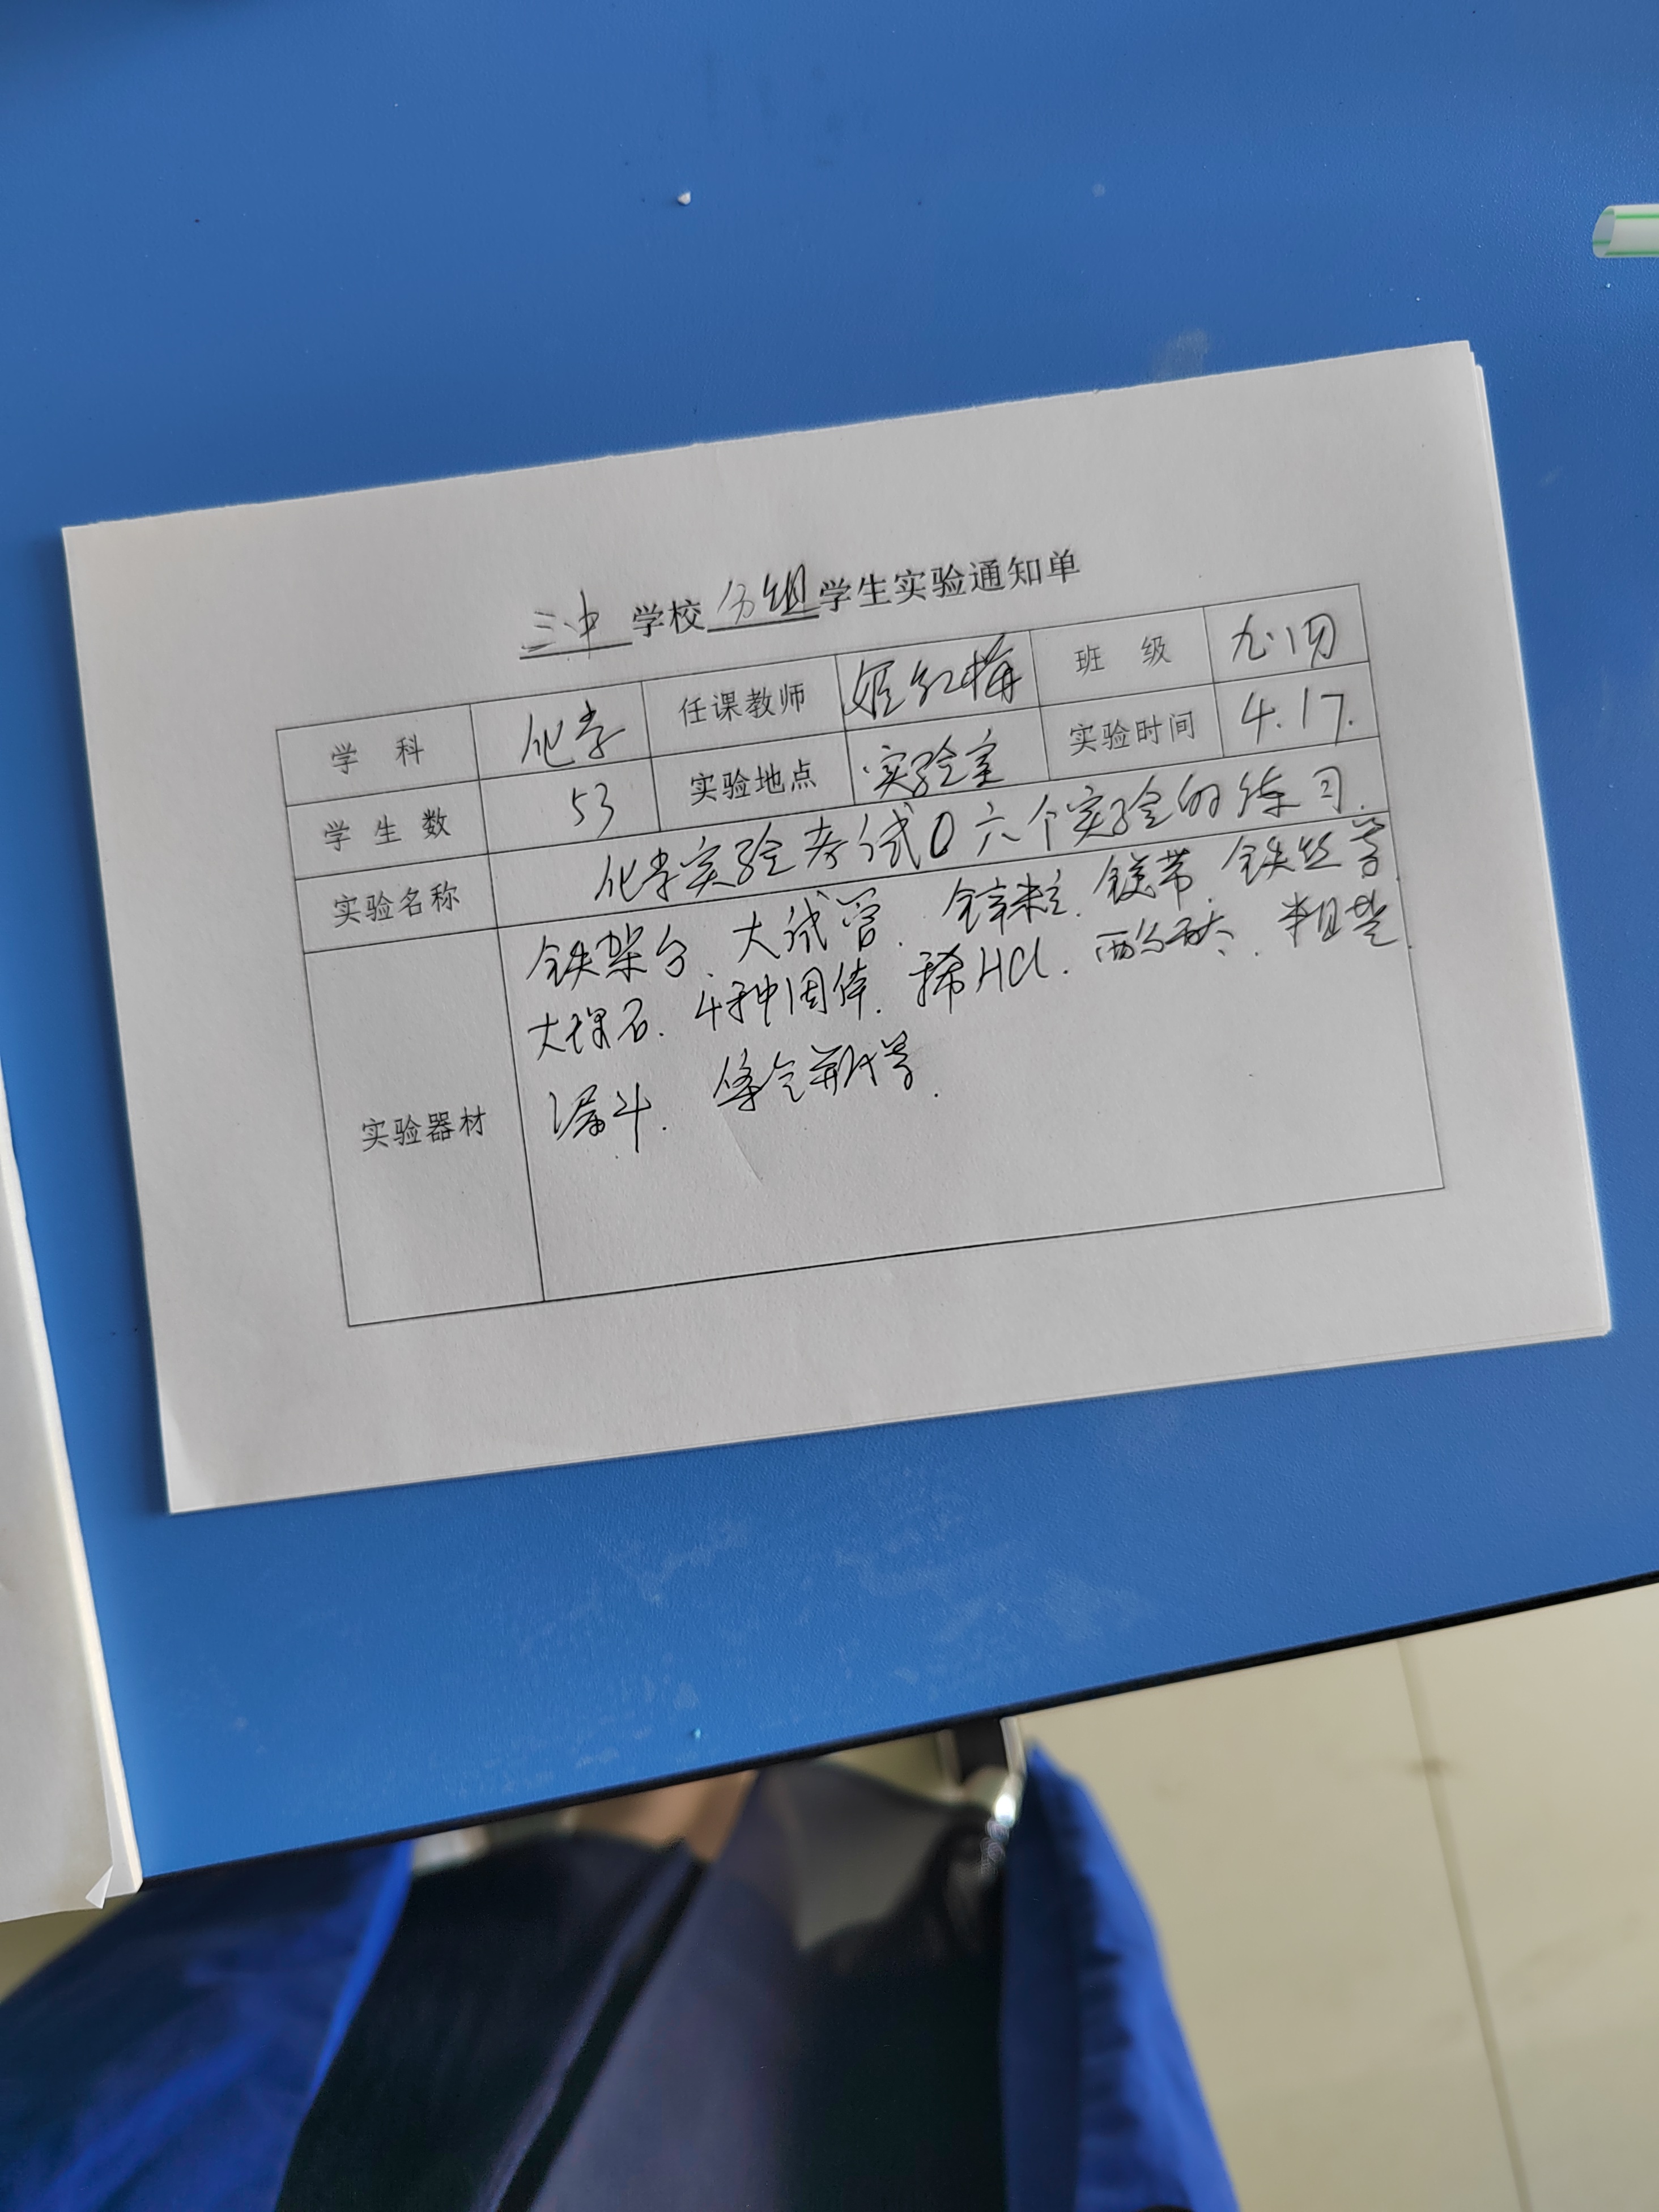 三中学校分组学生实验通知单
学科 化学 任课教师 姬红梅 班级 九·四
学生数 53 实验地点 实验室 实验时间 4.17.
实验名称 化学实验考试六个实验的练习.
实验器材 铁架台、大试管、锌粒、镁带、铁丝等
大理石、4种固体、稀HCl、酚酞、粗盐
漏斗、集气瓶等.